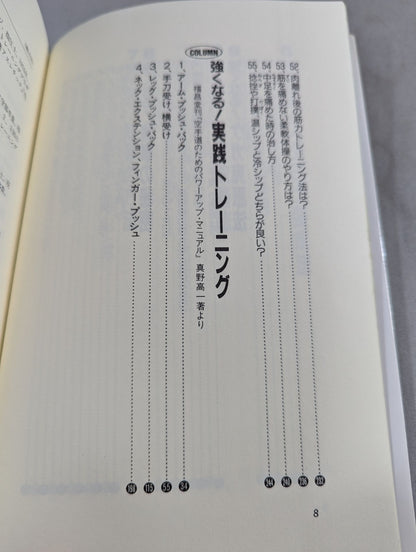 52、肉離れ後の筋力トレーニング法は?
53、筋を痛めない柔軟体操のやり方は?
54、中足を痛めた時の治し方
55、捻挫や打撲、湿シップと冷シップどちらが良い?
COLUMN
強くなる!実践トレーニング
福昌堂刊「空手道のためのパワーアップ・マニュアル」真野高一著より
1、アーム・プッシュ・バック 34
2、手刀受け、横受け 55
3、レッグ・プッシュ・バック 115
4、ネック・エクステンション、フィンガー・プッシュ
8